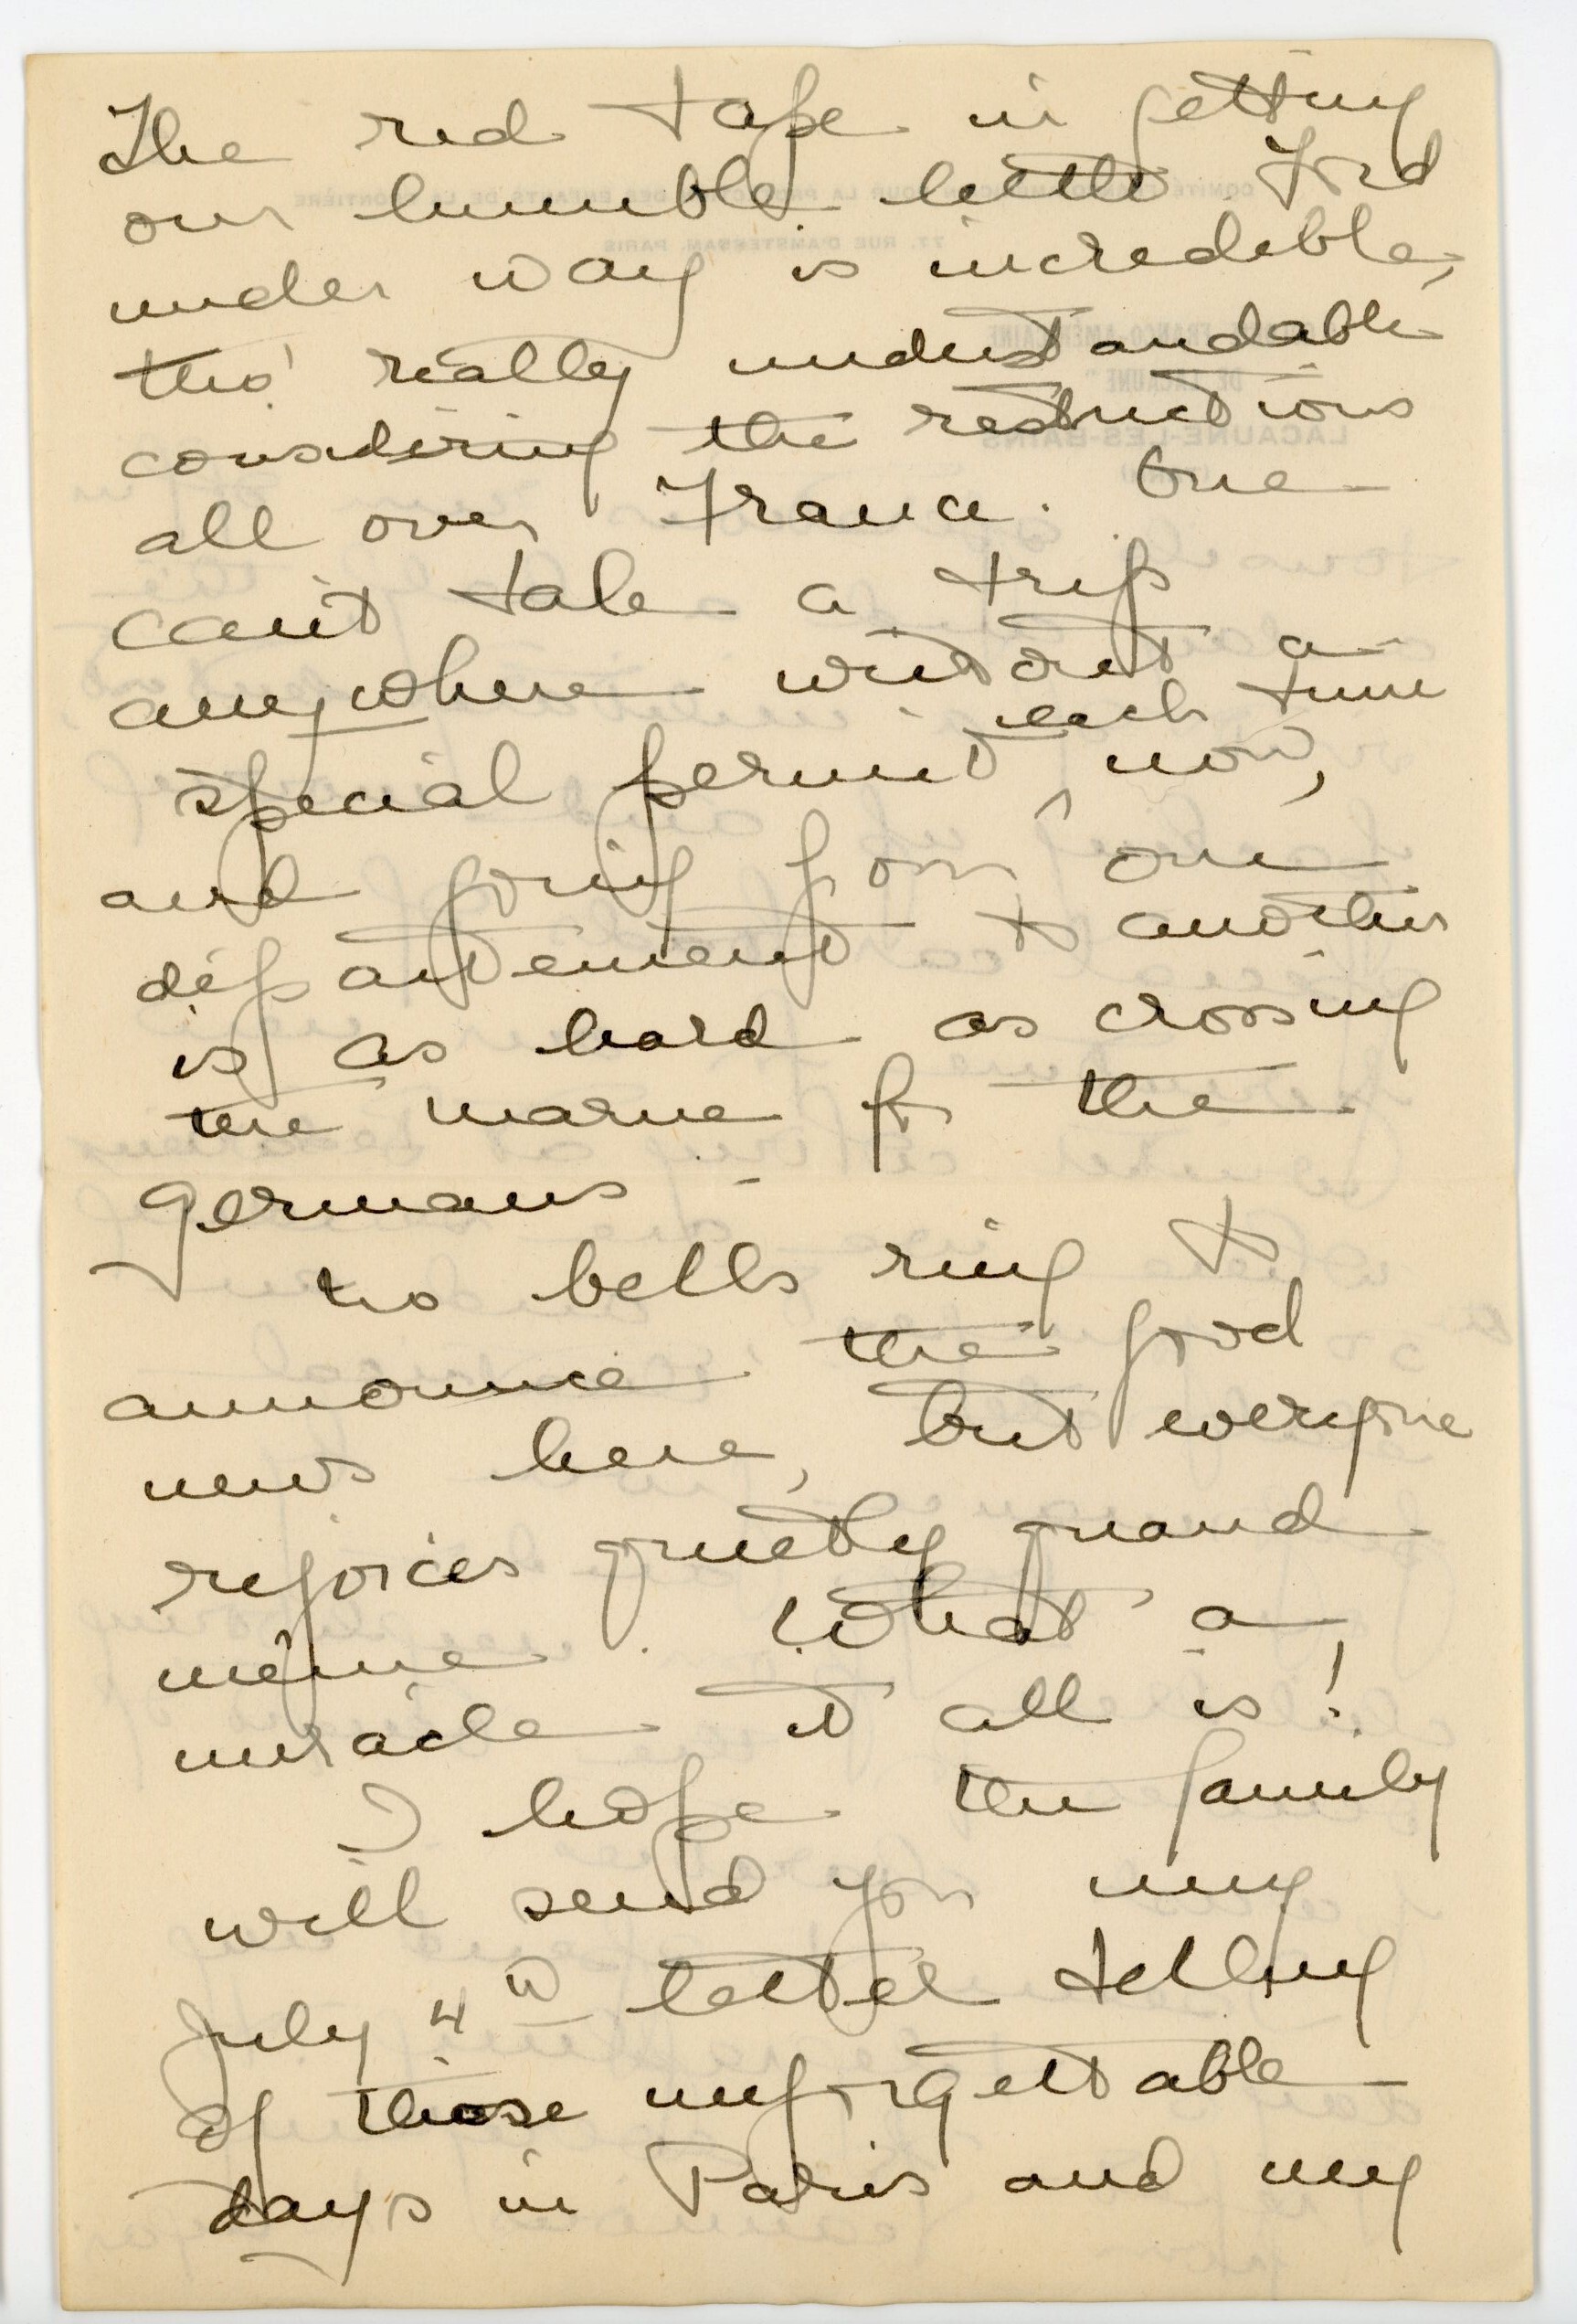 The red tape in getting
our humble little Ford
under way is incredible,
tho' really understandable
considering the restrictions
all over France. One
can't take a trip
anywhere without a
special permit ^ each time now,
and going from one
département to another
is as hard as crossing
the Marne for the
Germans.
No bells ring to
announce the good
news here, but everyone
rejoices quietly quand
même. What a
miracle it all is!
I hope the family
will send you my
July 4th letter telling
of those unforgettable
days in Paris and my